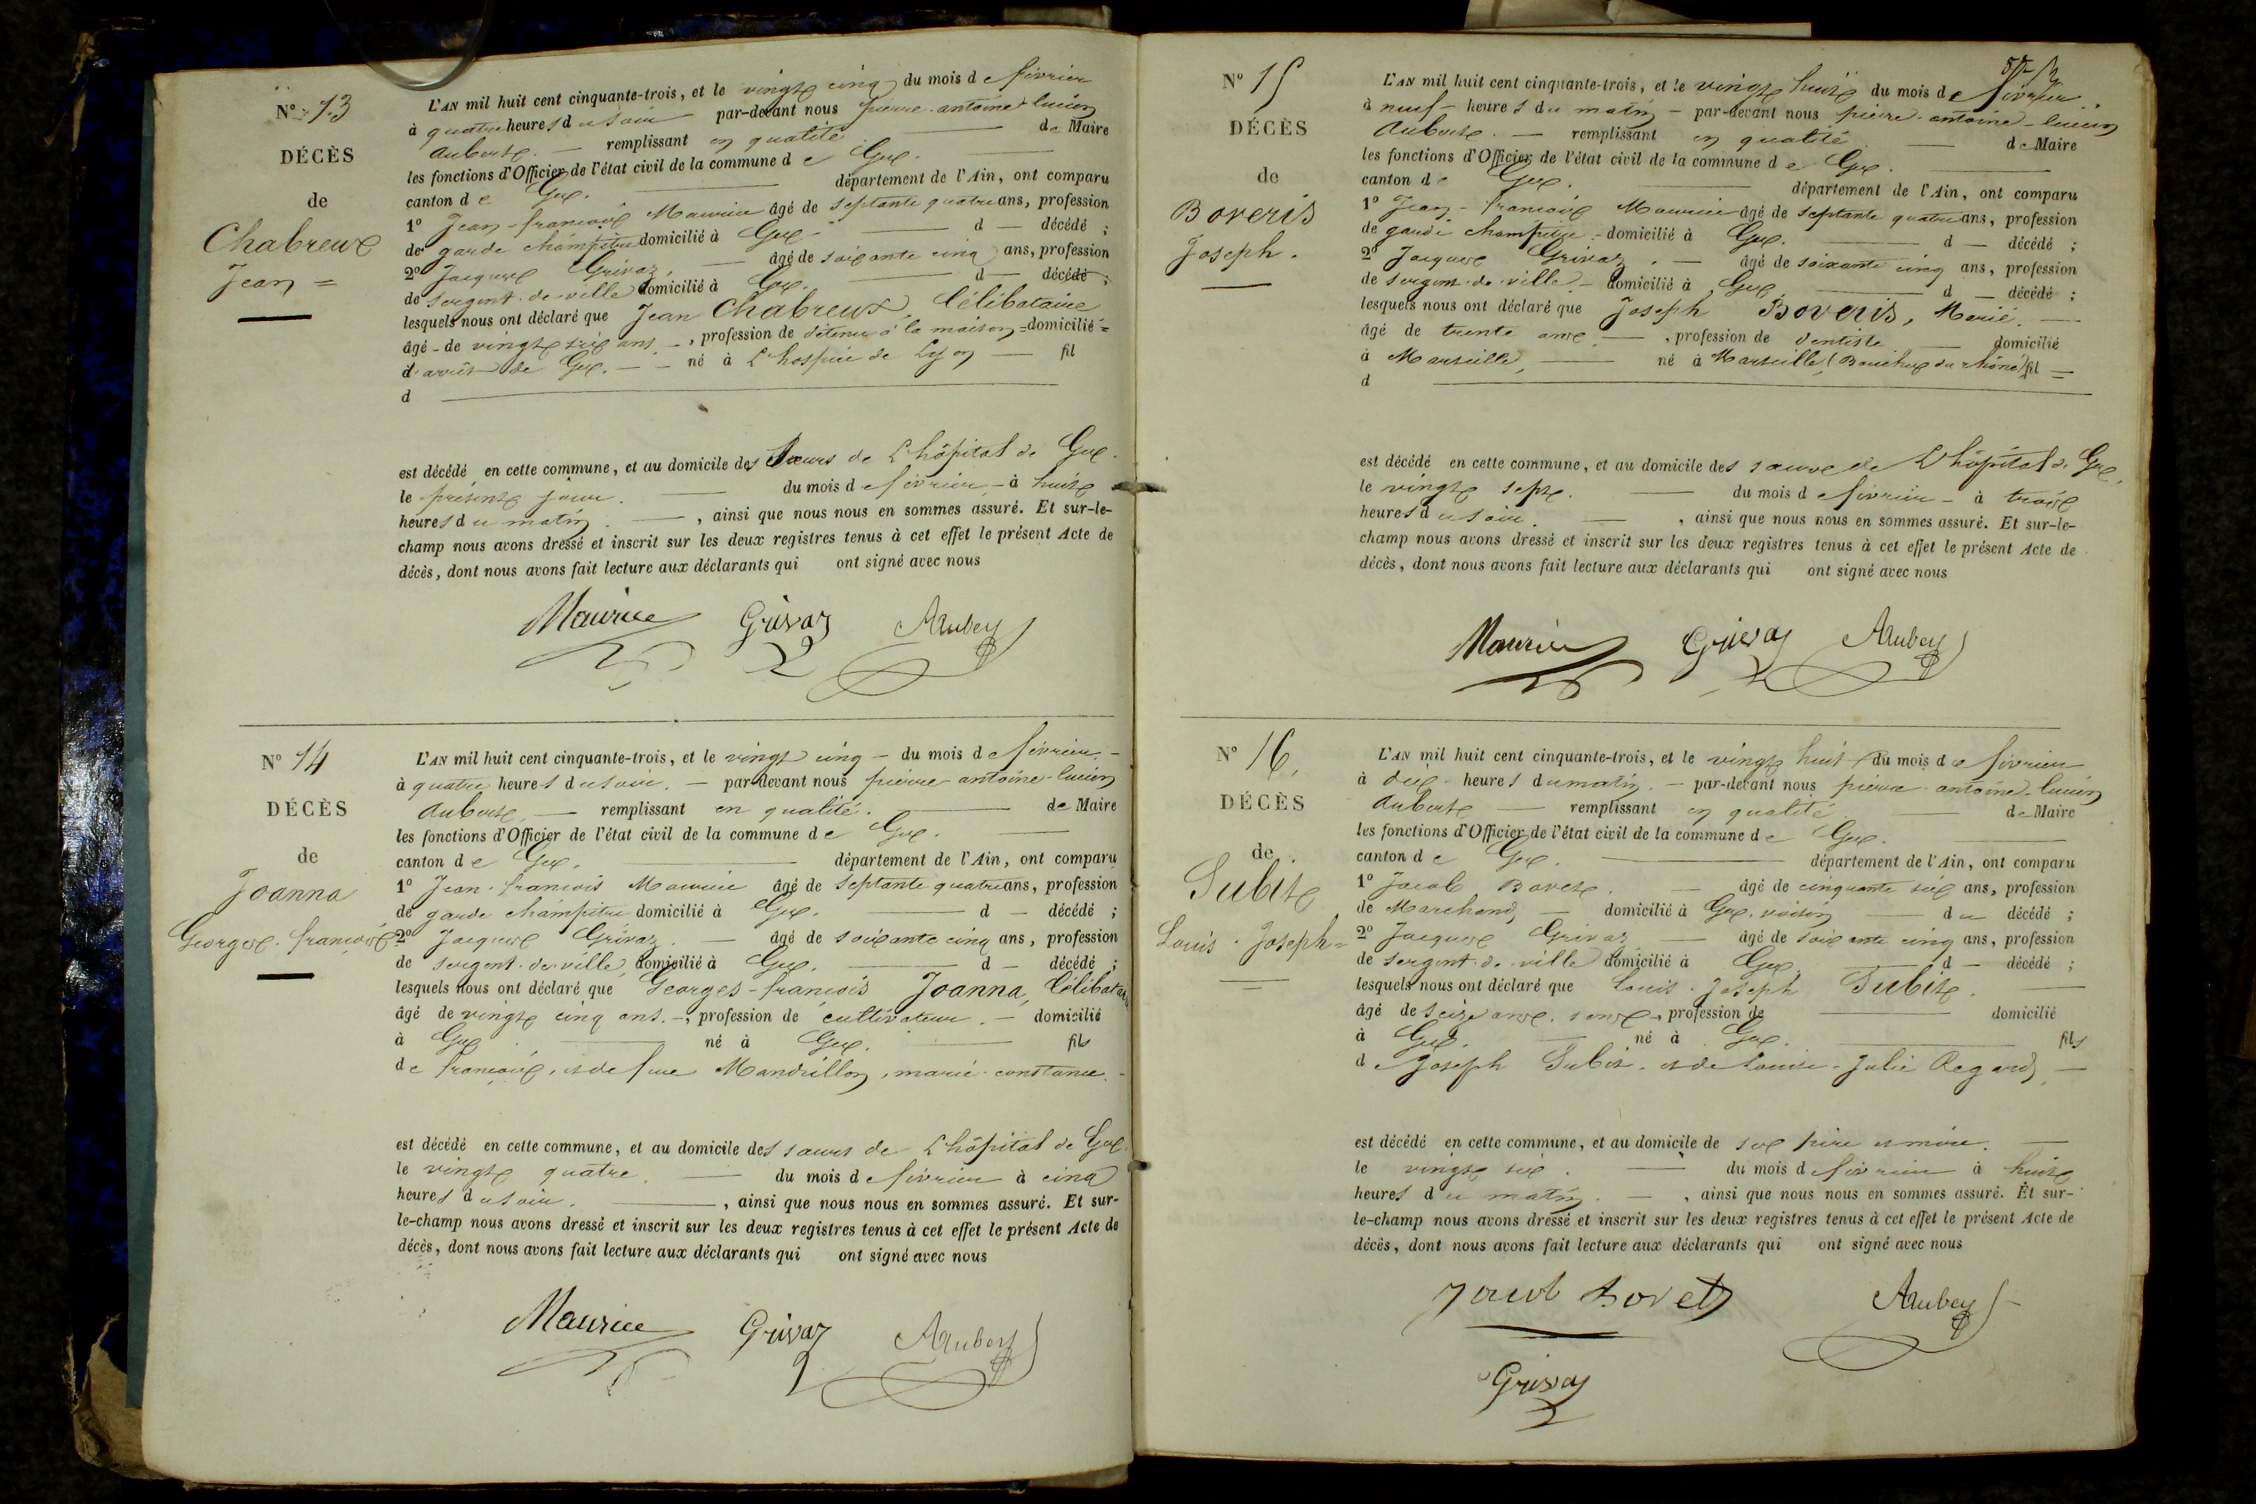 N° 13
DÉCÈS
de
Chabreux
Jean =
L'AN mil huit cent cinquante-trois, et le vingt cinq du mois de février
à quatre heures du soir par-devant nous pierre-antoine-lucien
Aubert. — remplissant en qualité de Maire
les fonctions d'Officier de l'état civil de la commune de Gex.
canton de Gex. département de l'Ain, ont comparu
1° Jean-francois Maurice âgé de septante quatre ans, profession
de garde champêtre domicilié à Gex d — décédé ;
2° Jacques Grivaz. — âgé de soixante cinq ans, profession
de sergent de ville domicilié à Gex. d — décédé ;
lesquels nous ont déclaré que Jean Chabreux, Célibataire
âgé de vingt six ans —, profession de détenu à la maison = domicilié =
d'arrêt de Gex. — né à L'hospice de Lyon — fil
d
est décédé en cette commune, et au domicile des sœurs de L'hôpital de Gex.
le présent jour. du mois de février — à huit
heures du matin. —, ainsi que nous nous en sommes assuré. Et sur-le-
champ nous avons dressé et inscrit sur les deux registres tenus à cet effet le présent Acte de
décès, dont nous avons fait lecture aux déclarants qui ont signé avec nous
Maurice Grivaz Aubert
N° 14
DÉCÈS
de
Joanna
Georges-françois.
L'AN mil huit cent cinquante-trois, et le vingt cinq — du mois de février. —
à quatre heures du soir. — par-devant nous pierre-antoine-lucien
Aubert. — remplissant en qualité. de Maire
les fonctions d'Officier de l'état civil de la commune de Gex.
canton de Gex. département de l'Ain, ont comparu
1° Jean-francois Maurice âgé de septante quatre ans, profession
de garde champêtre domicilié à Gex. d — décédé ;
2° Jacques Grivaz. — âgé de soixante cinq ans, profession
de sergent de ville domicilié à Gex. d — décédé ;
lesquels nous ont déclaré que Georges-francois Joanna, Célibataire
âgé de vingt cinq ans. —, profession de cultivateur. — domicilié
à Gex né à Gex. fils
de françois, et de feue Mandrillon, marie-constance. —
est décédé en cette commune, et au domicile des sœurs de L'hôpital de Gex
le vingt quatre. du mois de février à cinq
heures du soir. , ainsi que nous nous en sommes assuré. Et sur-
le-champ nous avons dressé et inscrit sur les deux registres tenus à cet effet le présent Acte de
décès, dont nous avons fait lecture aux déclarants qui ont signé avec nous
Maurice Grivaz Aubert
N° 15
DÉCÈS
de
Boveris
Joseph.
L'AN mil huit cent cinquante-trois, et le vingt huit du mois de février
à neuf heures du matin — par-devant nous pierre-antoine-lucien
Aubert. — remplissant en qualité de Maire
les fonctions d'Officier de l'état civil de la commune de Gex.
canton de Gex. département de l'Ain, ont comparu
1° Jean-francois Maurice âgé de septante quatre ans, profession
de garde champêtre — domicilié à Gex. d — décédé ;
2° Jacques Grivaz. — âgé de soixante cinq ans, profession
de sergent de ville — domicilié à Gex. d — décédé ;
lesquels nous ont déclaré que Joseph Boveris, Marié. —
âgé de trente ans. —, profession de dentiste — domicilié
à Marseille, — né à Marseille, (Bouches du rhône) fil =
d
est décédé en cette commune, et au domicile des sœurs de L'hôpital de Gex,
le vingt sept. du mois de février — à trois
heures du soir. — , ainsi que nous nous en sommes assuré. Et sur-le-
champ nous avons dressé et inscrit sur les deux registres tenus à cet effet le présent Acte de
décès, dont nous avons fait lecture aux déclarants qui ont signé avec nous
Maurice Grivaz Aubert
N° 16
DÉCÈS
de
Subit
Louis-Joseph =
L'AN mil huit cent cinquante-trois, et le vingt huit du mois de février
à dix heures du matin. — par-devant nous pierre-antoine-lucien
Aubert — remplissant en qualité de Maire
les fonctions d'Officier de l'état civil de la commune de Gex.
canton de Gex. département de l'Ain, ont comparu
1° Jacob Bovet. — âgé de cinquante six ans, profession
de Marchand, — domicilié à Gex, voisin du décédé ;
2° Jacques Grivaz — âgé de soixante cinq ans, profession
de sergent de ville domicilié à Gex, d — décédé ;
lesquels nous ont déclaré que Louis-Joseph Subit.
âgé de seize ans. sans —, profession de domicilié
à Gex. né à Gex. fils
de Joseph Subit, et de Louise-Julie Regard, —
est décédé en cette commune, et au domicile de ses père et mère. —
le vingt six. du mois de février à huit
heures du matin. — , ainsi que nous nous en sommes assuré. Et sur-
le-champ nous avons dressé et inscrit sur les deux registres tenus à cet effet le présent Acte de
décès, dont nous avons fait lecture aux déclarants qui ont signé avec nous
Jacob Bovet Aubert
Grivaz